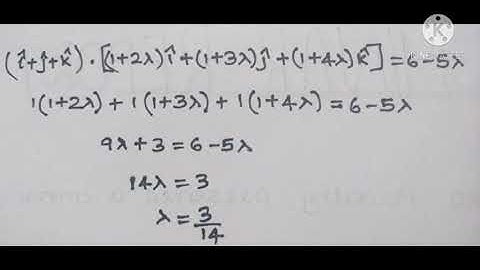 (î+ĵ+k̂)·[(1+2λ)î+(1+3λ)ĵ+(1+4λ)k̂]=6-5λ
1(1+2λ)+1(1+3λ)+1(1+4λ)=6-5λ
9λ+3=6-5λ
14λ=3
λ=3/14